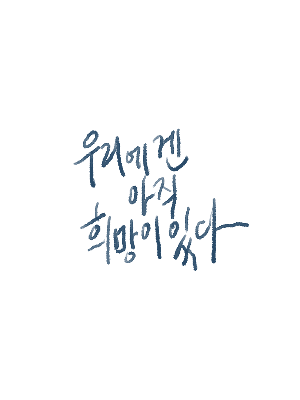 우리에겐
아직
희망이 있다